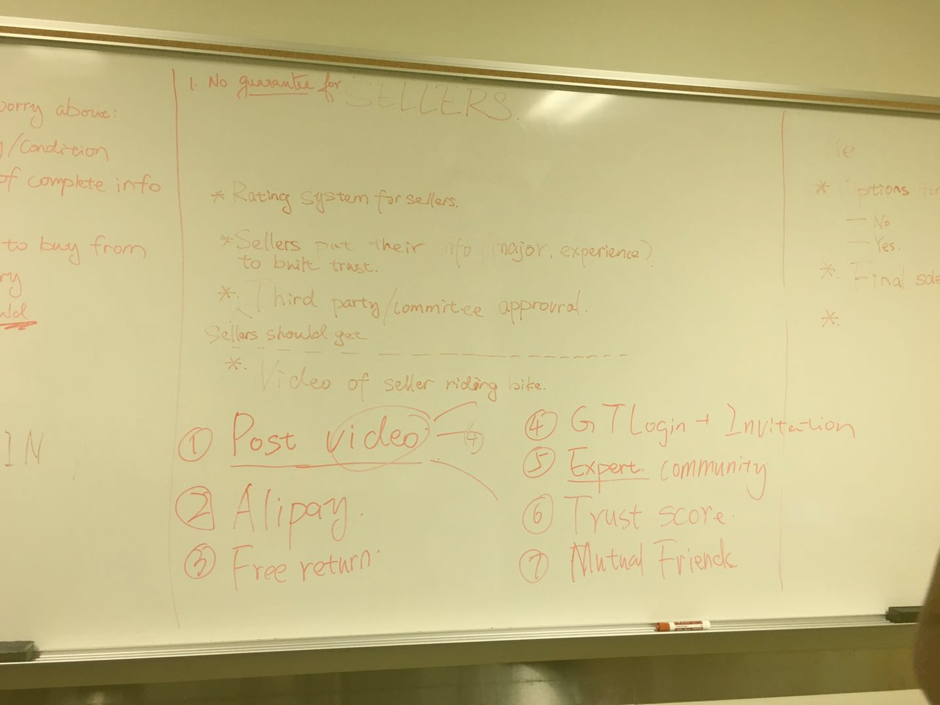 worry about:
/condition
of complete info
to buy from
IN
1. No guarantee for SELLERS.
* Rating system for sellers.
* Sellers put their info (major, experience)
to built trust.
* Third party/commitee approural.
Sellers should get
*. Video of seller riding bike.
① Post video ④
② Alipay.
③ Free return.
④ GT Login + Invitation
⑤ Expert community
⑥ Trust score.
⑦ Mutual Friends
ie
* Options
— No
— Yes.
*. Final
*.